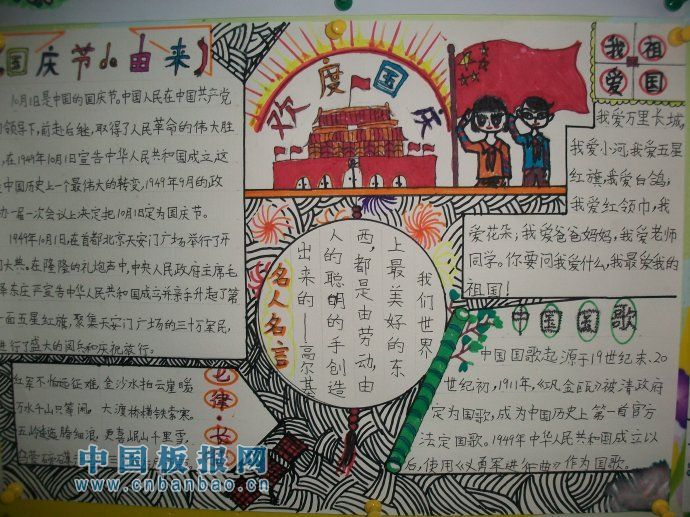 国庆节的由来
10月1日是中国的国庆节。中国人民在中国共产党
领导下,前赴后继,取得了人民革命的伟大胜
,在1949年10月1日宣告中华人民共和国成立这
中国历史上一个最伟大的转变,1949年9月的政
一届一次会议上决定把10月1日定为国庆节。
1949年10月1日,在首都北京天安门广场举行了开
大典。在隆隆的礼炮声中,中央人民政府主席毛
泽东庄严宣告中华人民共和国成立并亲手升起了第
一面五星红旗,聚集天安门广场的三十万军民,
进行了盛大的阅兵和庆祝旅行。
红军不怕远征难 金沙水拍云崖暖
万水千山只等闲。大渡桥横铁索寒。
五岭逶迤腾细浪,更喜岷山千里雪,
七律·长
欢度国庆
名人名言
我们世界
上最美好的东
西,都是由劳动,由
人的聪明的手创造
出来的——高尔基
我祖
爱国
我爱万里长城,
我爱小河,我爱五星
红旗,我爱白鸽;
我爱红领巾,我
爱花朵,我爱爸爸妈妈,我爱老师
同学。你要问我爱什么,我最爱我的
祖国!
中国国歌
中国国歌起源于19世纪末、20
世纪初,1911年,《巩金瓯》被清政府
定为国歌,成为中国历史上第一首官方
法定国歌。1949年中华人民共和国成立以
后,使用《义勇军进行曲》作为国歌。
中国板报网
www.cnbanbao.cn